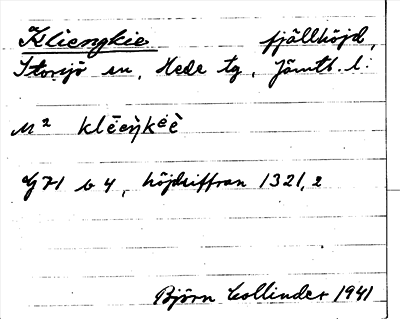 Kliengkie fjällhöjd,
Storsjö sn, Hede tg, Jämtl. l.
M² klēeŋ̀kēè
G 71 b 4, höjdsiffran 1321,2
Björn Collinder 1941